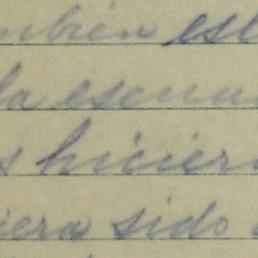 mbién est
la escue
s hiciero
iera sido